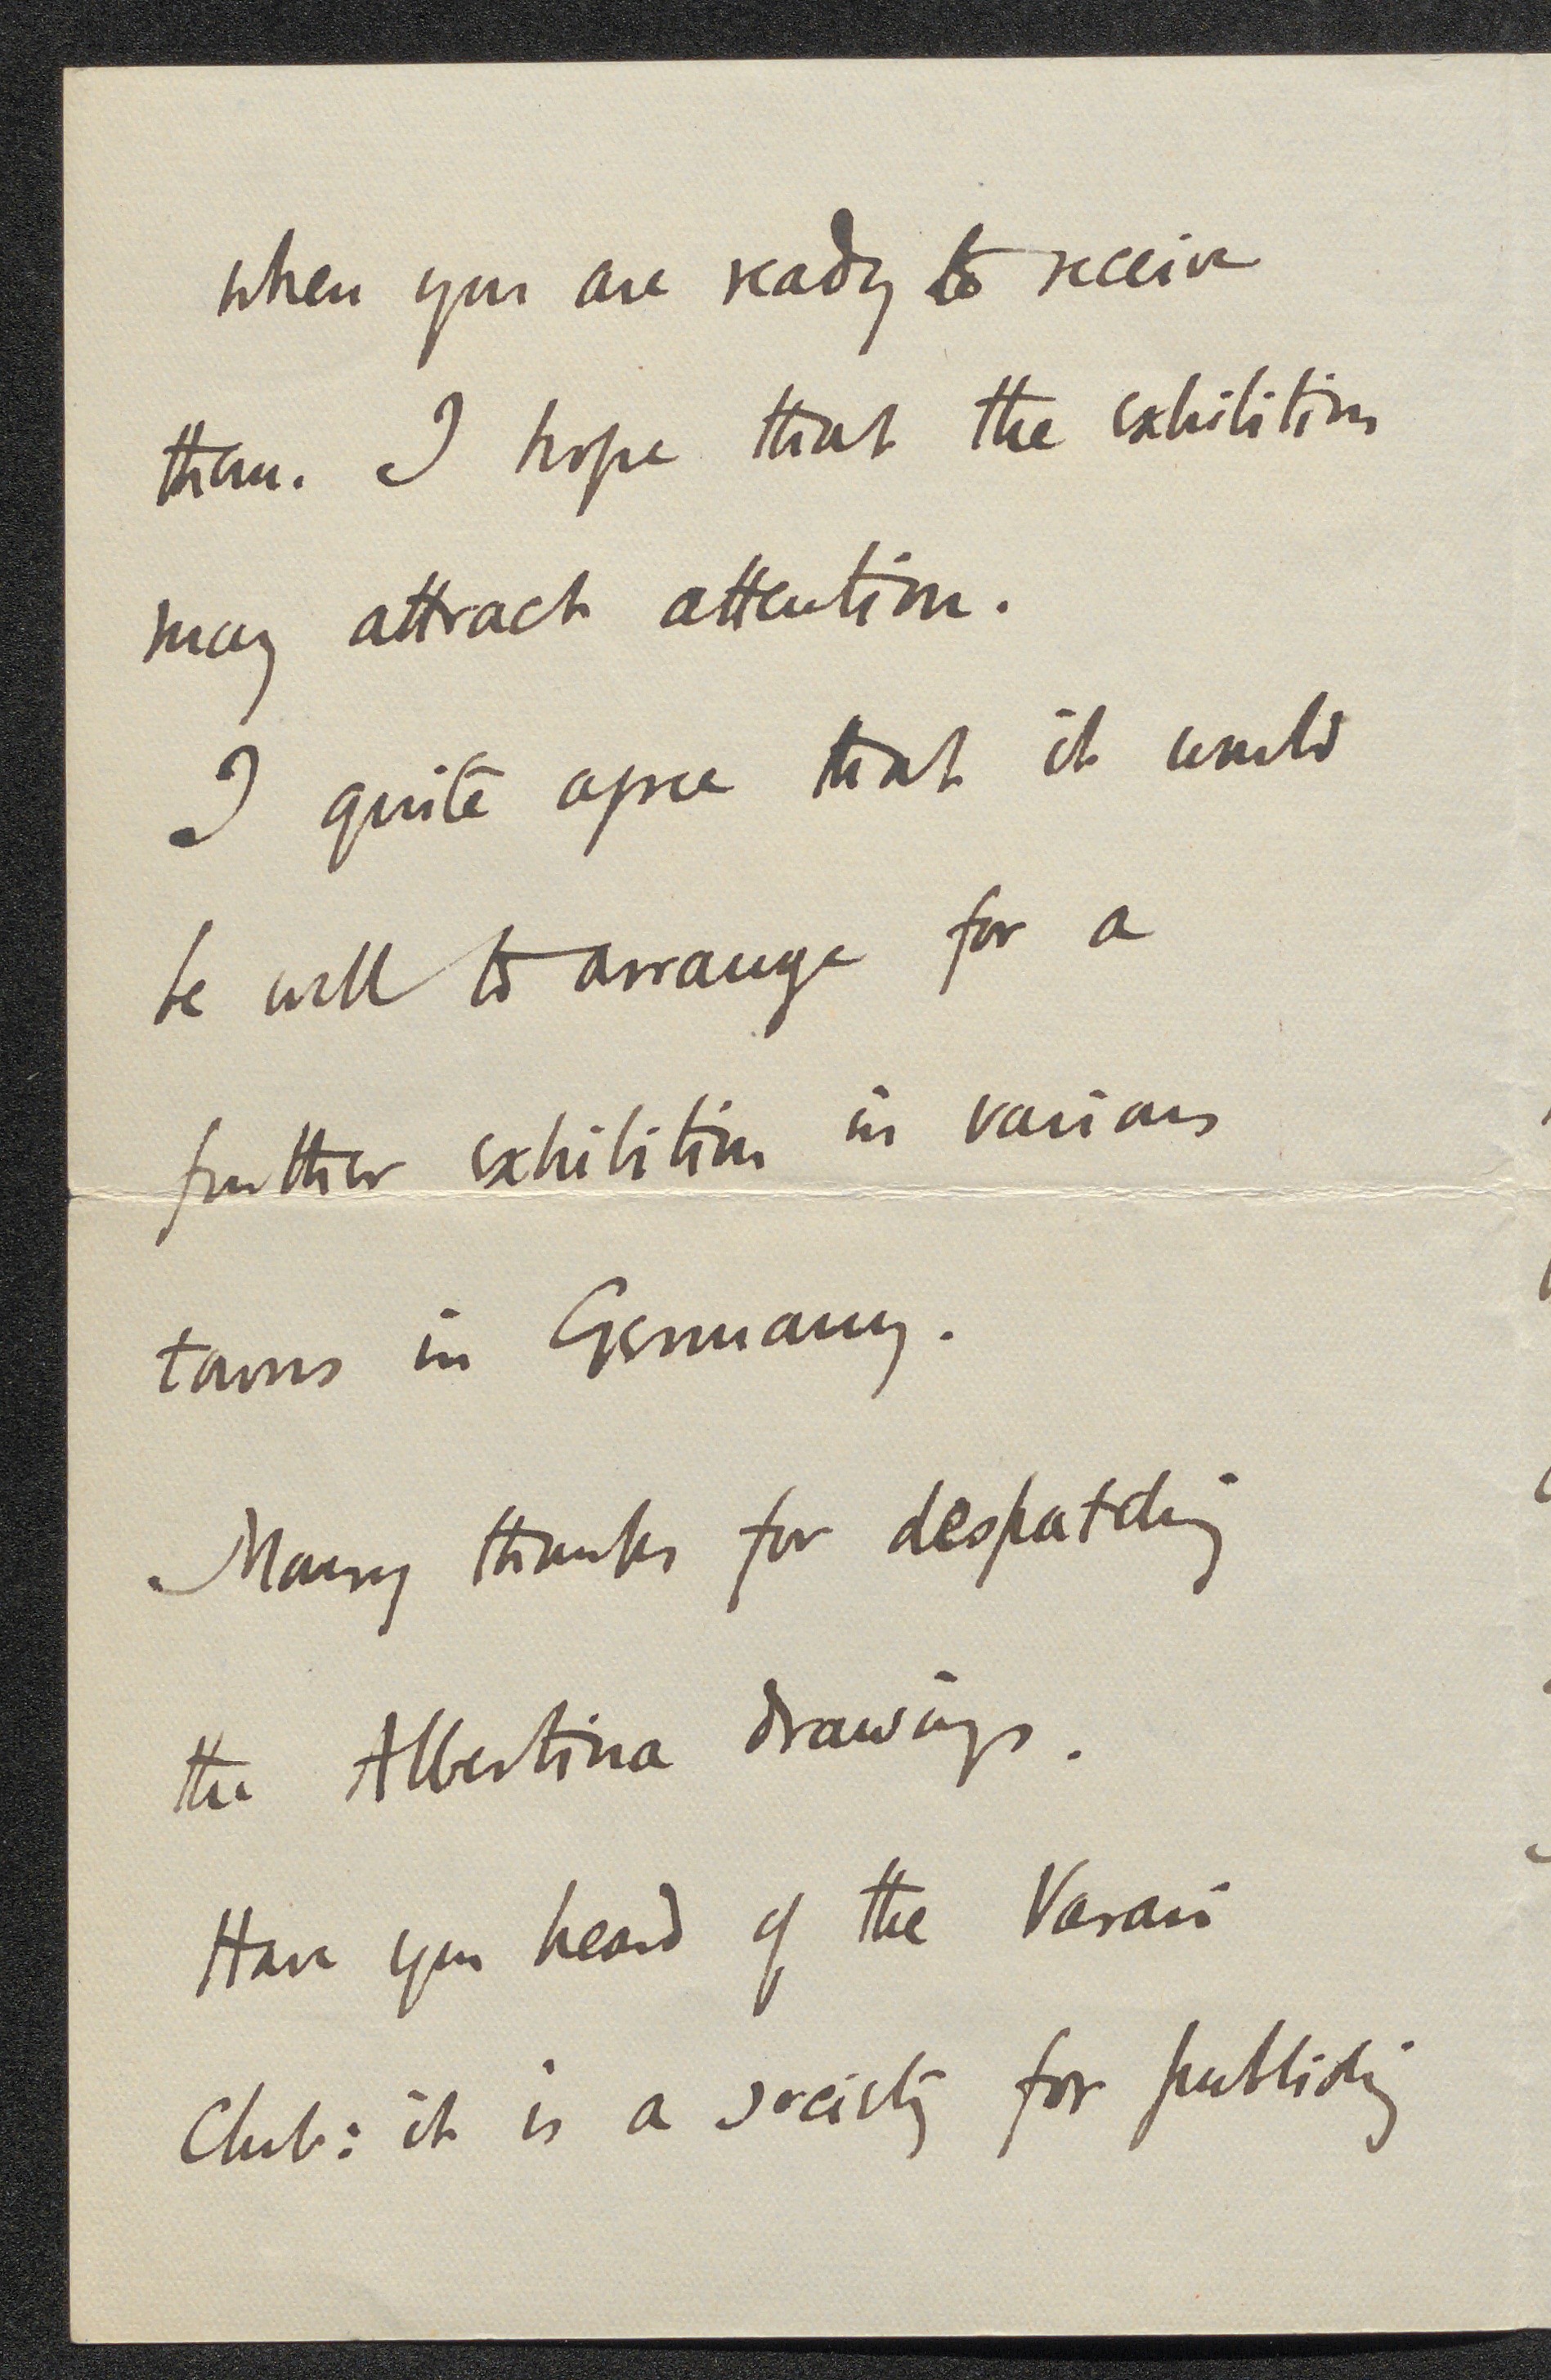 when you are ready to receive
them. I hope that the exhibition
may attract attention.
I quite agree that it would
be well to arrange for a
further exhibition in various
towns in Germany.
Many thanks for despatching
the Albertina drawings.
Have you heard of the Vasari
Club: it is a society for publishing